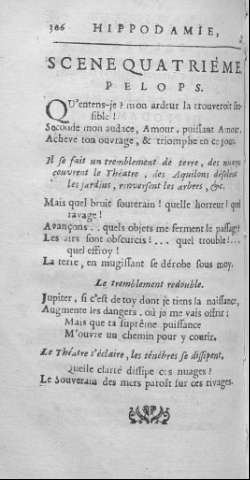 306 HIPPODAMIE,
SCENE QUATRIÉME
PELOPS.
QU'entens-je? mon ardeur la trouveroit sen-
sible!
Seconde mon audace, Amour, puissant Amour,
Acheve ton ouvrage, & triomphe en ce jour.
Il se fait un tremblement de terre, des nuées
couvrent le Théatre, des Aquilons désolent
les jardins, renversent les arbres, &c.
Mais quel bruit souterain! quelle horreur! quel
ravage!
Avançons.. quels objets me ferment le passage?
Les airs sont obscurcis!... quel trouble!...
quel effroy!
La terre, en mugissant se dérobe sous moy.
Le tremblement redouble.
Jupiter, si c'est de toy dont je tiens la naissance,
Augmente les dangers, où je me vais offrir;
Mais que ta suprême puissance
M'ouvre un chemin pour y courir.
Le Théatre s'éclaire, les ténébres se dissipent,
Quelle clarté dissipe ces nuages?
Le Souverain des mers paroît sur ces rivages.